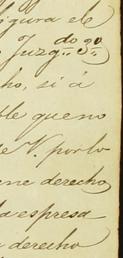 igura el
Juzg.do 3o.
ho, si á
le que no
de V. por lo
ene derecho
la espresa
a derecho